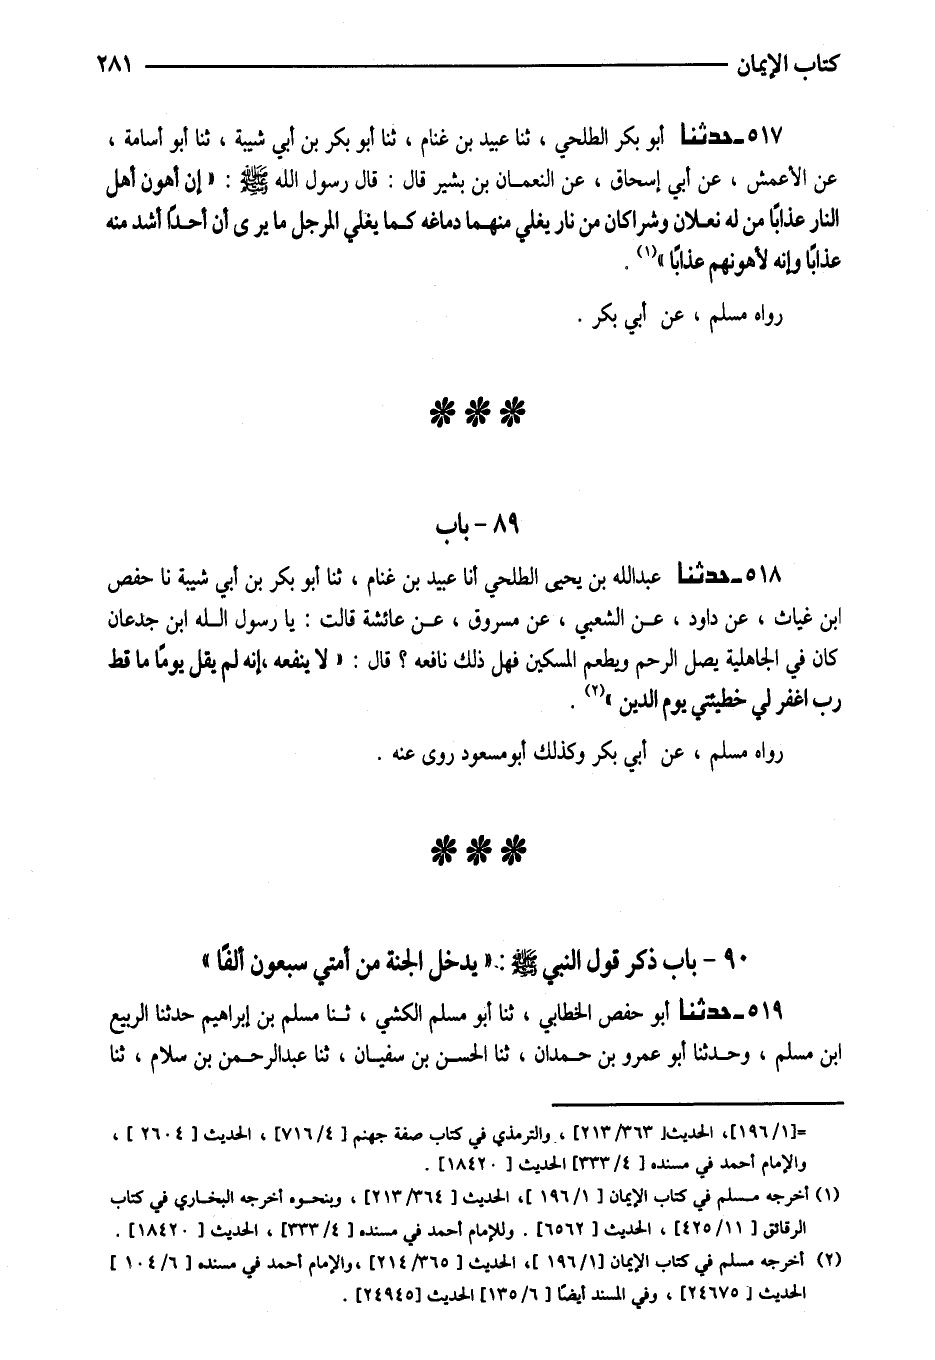 كتاب الإيمان ٢٨١
٥١٧ـ حدثنا أبو بكر الطلحي ، ثنا عبيد بن غنام ، ثنا أبو بكر بن أبي شيبة ، ثنا أبو أسامة ،
عن الأعمش ، عن أبي إسحاق ، عن النعمان بن بشير قال : قال رسول الله ﷺ : « إن أهون أهل
النار عذابًا من له نعلان وشراكان من نار يغلي منهما دماغه كما يغلي المرجل ما يرى أن أحدًا أشد منه
عذابًا وإنه لأهونهم عذابًا »(١) .
رواه مسلم ، عن أبي بكر .
***
٨٩ - باب
٥١٨ـ حدثنا عبدالله بن يحيى الطلحي أنا عبيد بن غنام ، ثنا أبو بكر بن أبي شيبة نا حفص
ابن غياث ، عن داود ، عن الشعبي ، عن مسروق ، عن عائشة قالت : يا رسول الله ابن جدعان
كان في الجاهلية يصل الرحم ويطعم المسكين فهل ذلك نافعه ؟ قال : « لا ينفعه ،إنه لم يقل يومًا ما قط
رب اغفر لي خطيئتي يوم الدين »(٢) .
رواه مسلم ، عن أبي بكر وكذلك أبومسعود روى عنه .
***
٩٠ - باب ذكر قول النبي ﷺ : « يدخل الجنة من أمتي سبعون ألفًا »
٥١٩ـ حدثنا أبو حفص الخطابي ، ثنا أبو مسلم الكشي ، ثنا مسلم بن إبراهيم حدثنا الربيع
ابن مسلم ، وحدثنا أبو عمرو بن حمدان ، ثنا الحسن بن سفيان ، ثنا عبدالرحمن بن سلام ، ثنا
=[١/ ١٩٦]، الحديث[ ٣٦٣/ ٢١٣] ، والترمذي في كتاب صفة جهنم [ ٤/ ٧١٦] ، الحديث [ ٢٦٠٤ ] ،
والإمام أحمد في مسنده [ ٤/ ٣٣٣] الحديث [ ١٨٤٢٠] .
(١) أخرجه مسلم في كتاب الإيمان [ ١/ ١٩٦ ]، الحديث [ ٣٦٤/ ٢١٣] ، وبنحوه أخرجه البخاري في كتاب
الرقائق [ ١١/ ٤٢٥] ، الحديث [ ٦٥٦٢] . وللإمام أحمد في مسنده [ ٤/ ٣٣٣] ، الحديث [ ١٨٤٢٠] .
(٢) أخرجه مسلم في كتاب الإيمان [١/ ١٩٦ ]، الحديث [ ٣٦٥/ ٢١٤] ،والإمام أحمد في مسنده [ ٦/ ١٠٤ ]
الحديث [ ٢٤٦٧٥] ، وفي المسند أيضًا [ ٦/ ١٣٥] الحديث [٢٤٩٤٥] .